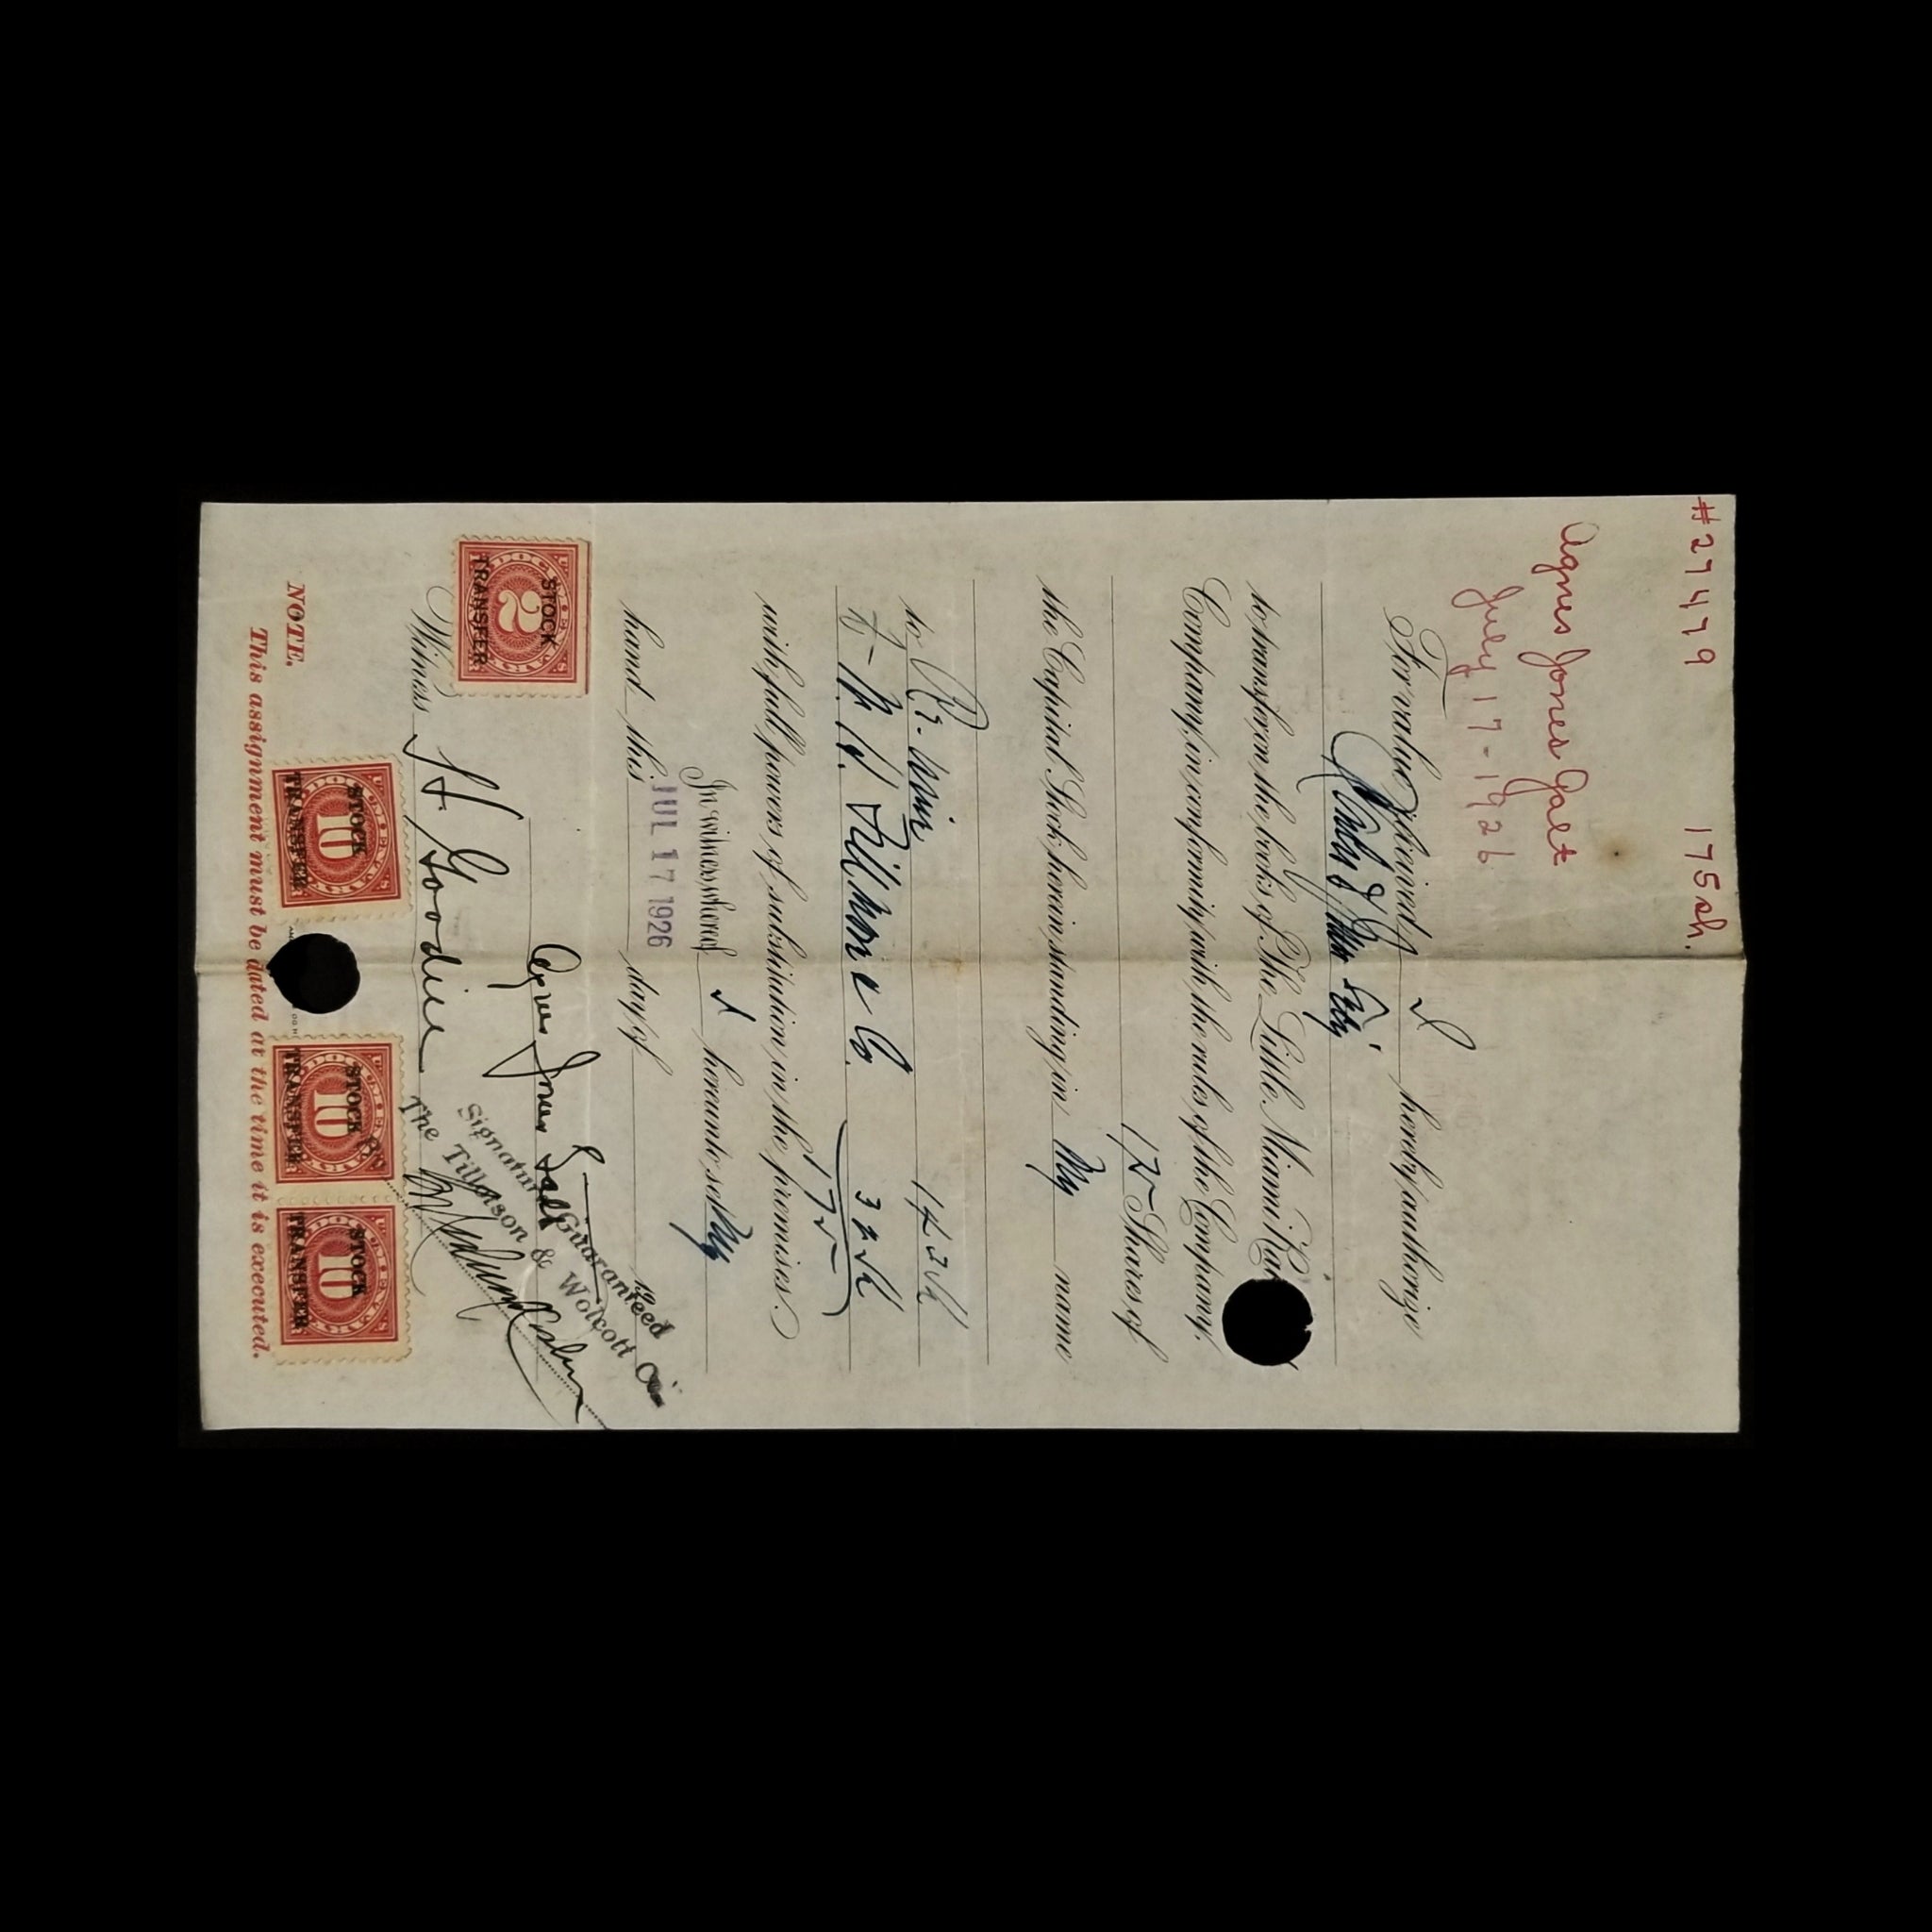 #27479 175 sh.
Agnes Jones Galt
July 17-1926
For value received, I hereby authorize
to transfer on the books of The Little Miami
Company, in conformity with the rules of the Company,
175 Shares of
the Capital Stock herein standing in My name
to Re-issue 143 sh
W. H. Fillmore & Co. 32 sh
175
with full powers of substitution in the premises.
In witness whereof I hereunto set My
hand this JUL 17 1926 day of 19
Agnes Jones Galt
Signature Guaranteed
The Tillotson & Wolcott Co.
STOCK
2
TRANSFER
Witness H. Goodie
STOCK
10
TRANSFER
STOCK
10
TRANSFER
STOCK
10
TRANSFER
NOTE.
This assignment must be dated at the time it is executed.